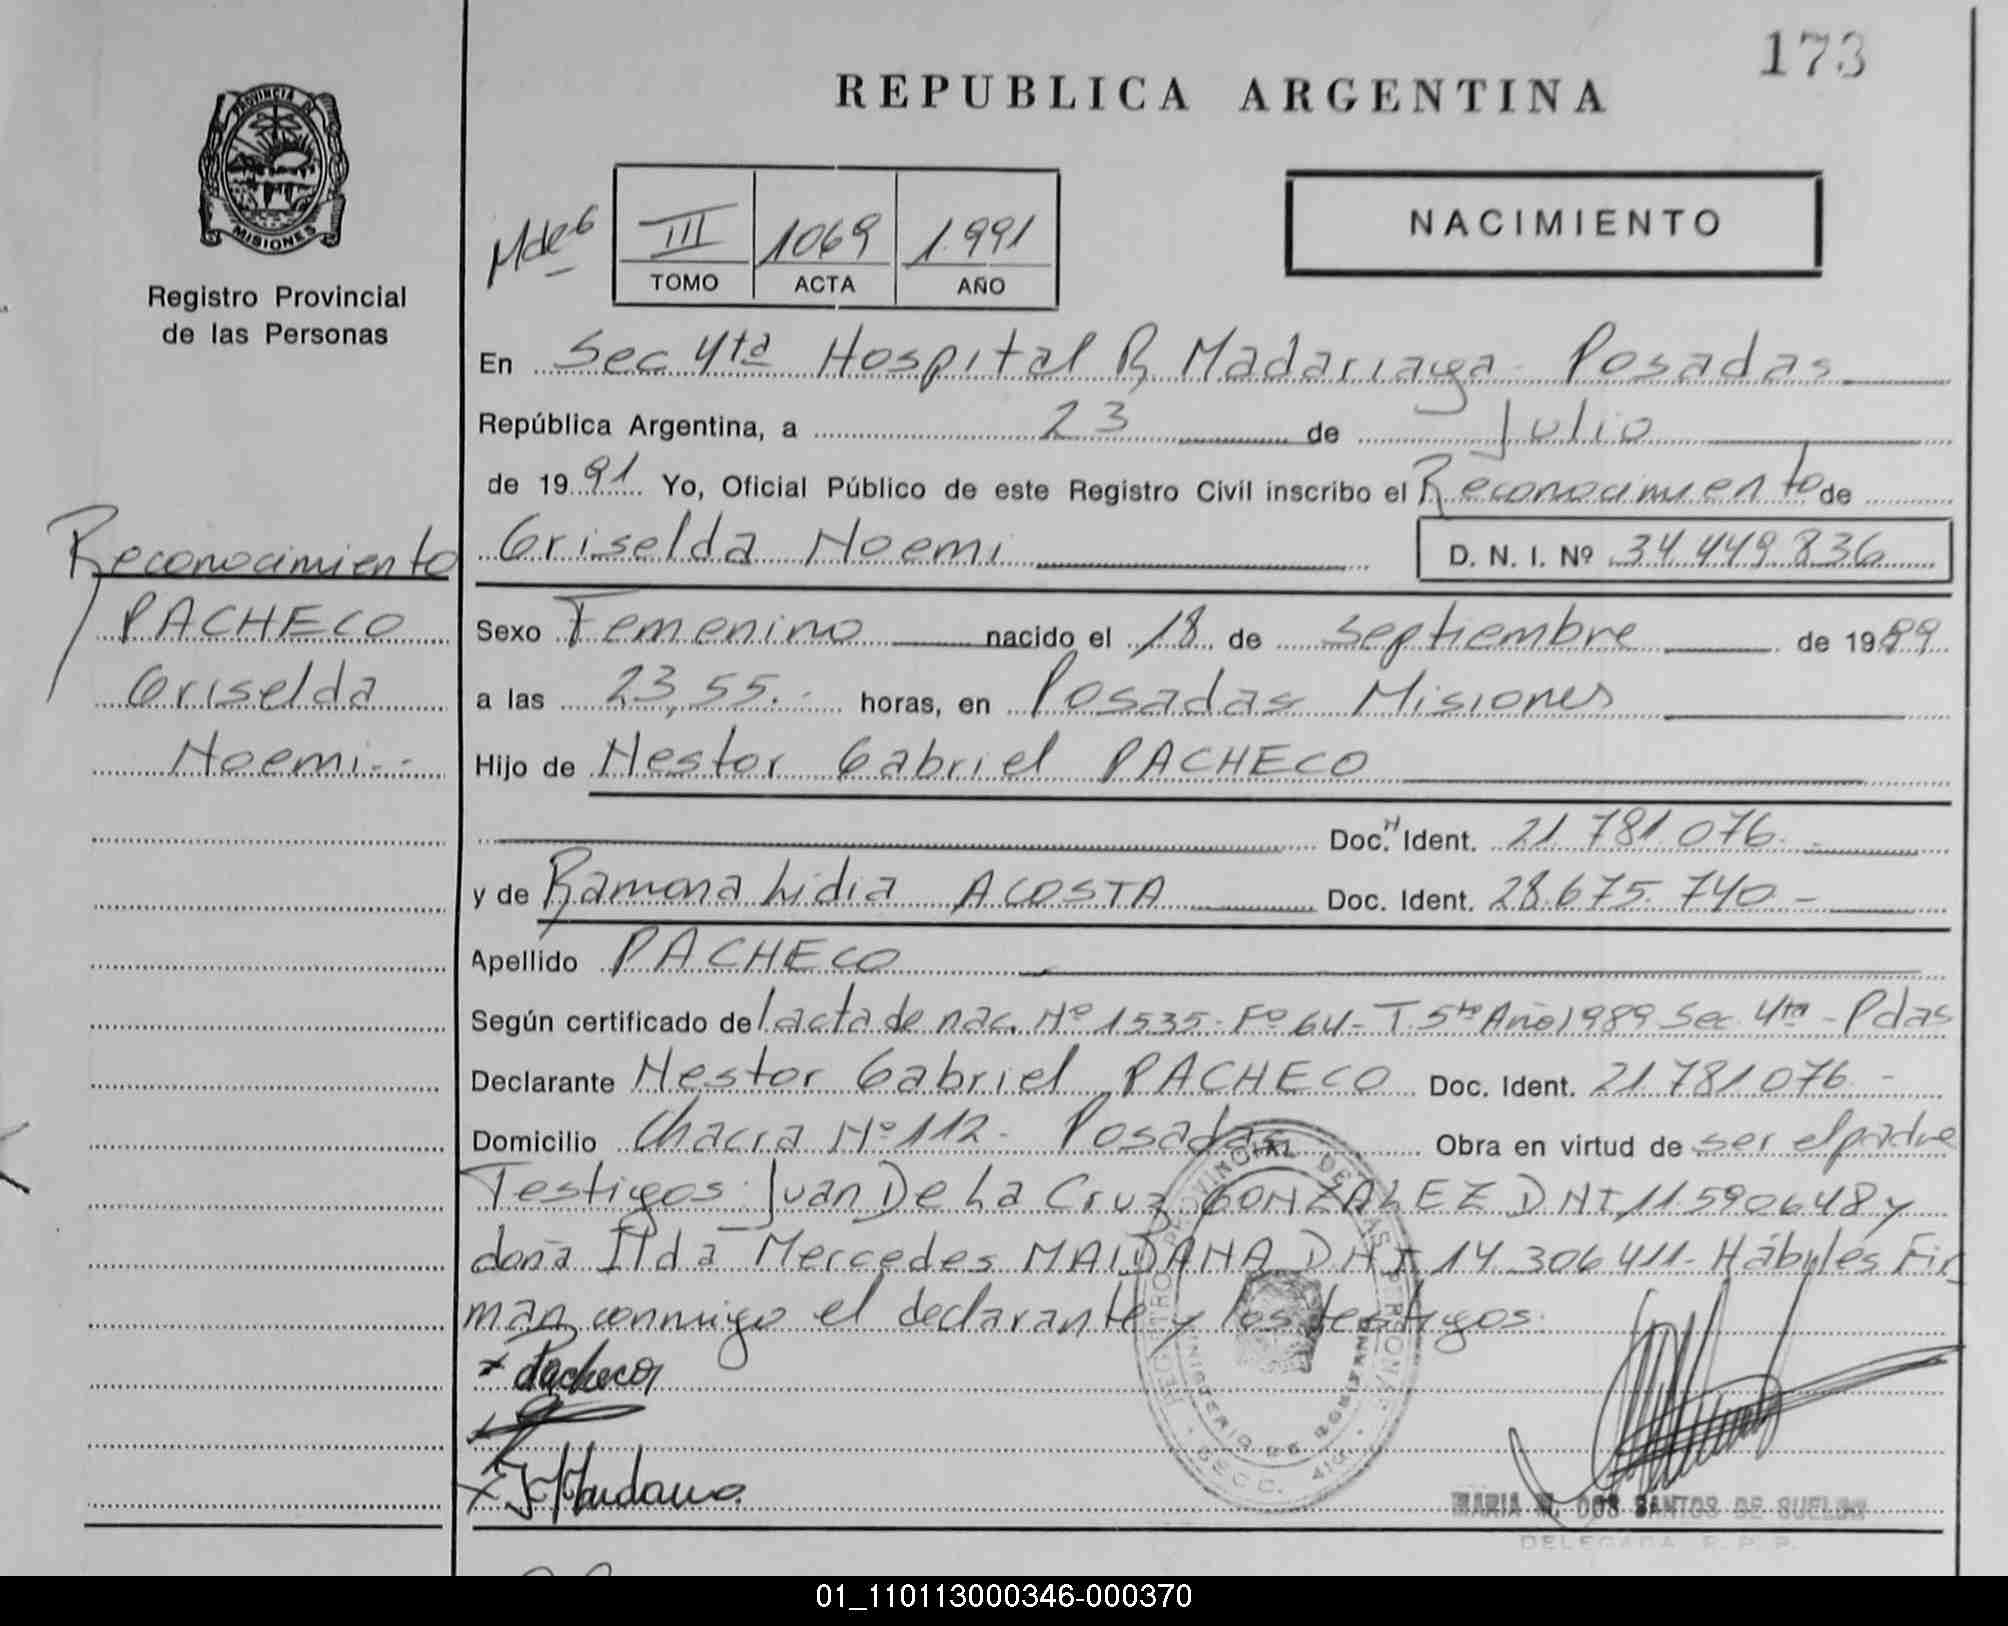 173
REPUBLICA ARGENTINA
PROVINCIA DE
MISIONES
Registro Provincial
de las Personas
III 1069 1.991
TOMO ACTA AÑO
NACIMIENTO
En Sec 4ta Hospital R, Madariaga Posadas
República Argentina, a 23 de Julio
de 1991 Yo, Oficial Público de este Registro Civil inscribo el Reconocimiento de
Griselda Noemi D. N. I. Nº 34.449.836
Reconocimiento
PACHECO
Griselda
Noemi.-
Sexo Femenino nacido el 18 de septiembre de 1989
a las 23,55.- horas, en Posadas Misiones
Hijo de Nestor Gabriel PACHECO
Doc. Ident. 21.781.076.-
y de Ramona Lidia ACOSTA Doc. Ident. 28.675.740.-
Apellido PACHECO
Según certificado de acta de nac. Nº 1535- Fº 64- T. 5to Año 1989 Sec 4ta- Pdas
Declarante Nestor Gabriel PACHECO Doc. Ident. 21.781.076.-
Domicilio Chacra Nº 112- Posadas Obra en virtud de ser el padre
Testigos: Juan De La Cruz GONZALEZ DNI 11.590648 y
doña Ilda Mercedes MAIDANA DNI 14.306.411- Hábiles Fir
man conmigo el declarante y los testigos.
REGISTRO PROVINCIAL DE LAS PERSONAS
MINISTERIO DE GOBIERNO
SECC. 4ta.
Pacheco
MARIA M. DOS SANTOS DE
DELEGADA R. P. P.
01_110113000346-000370